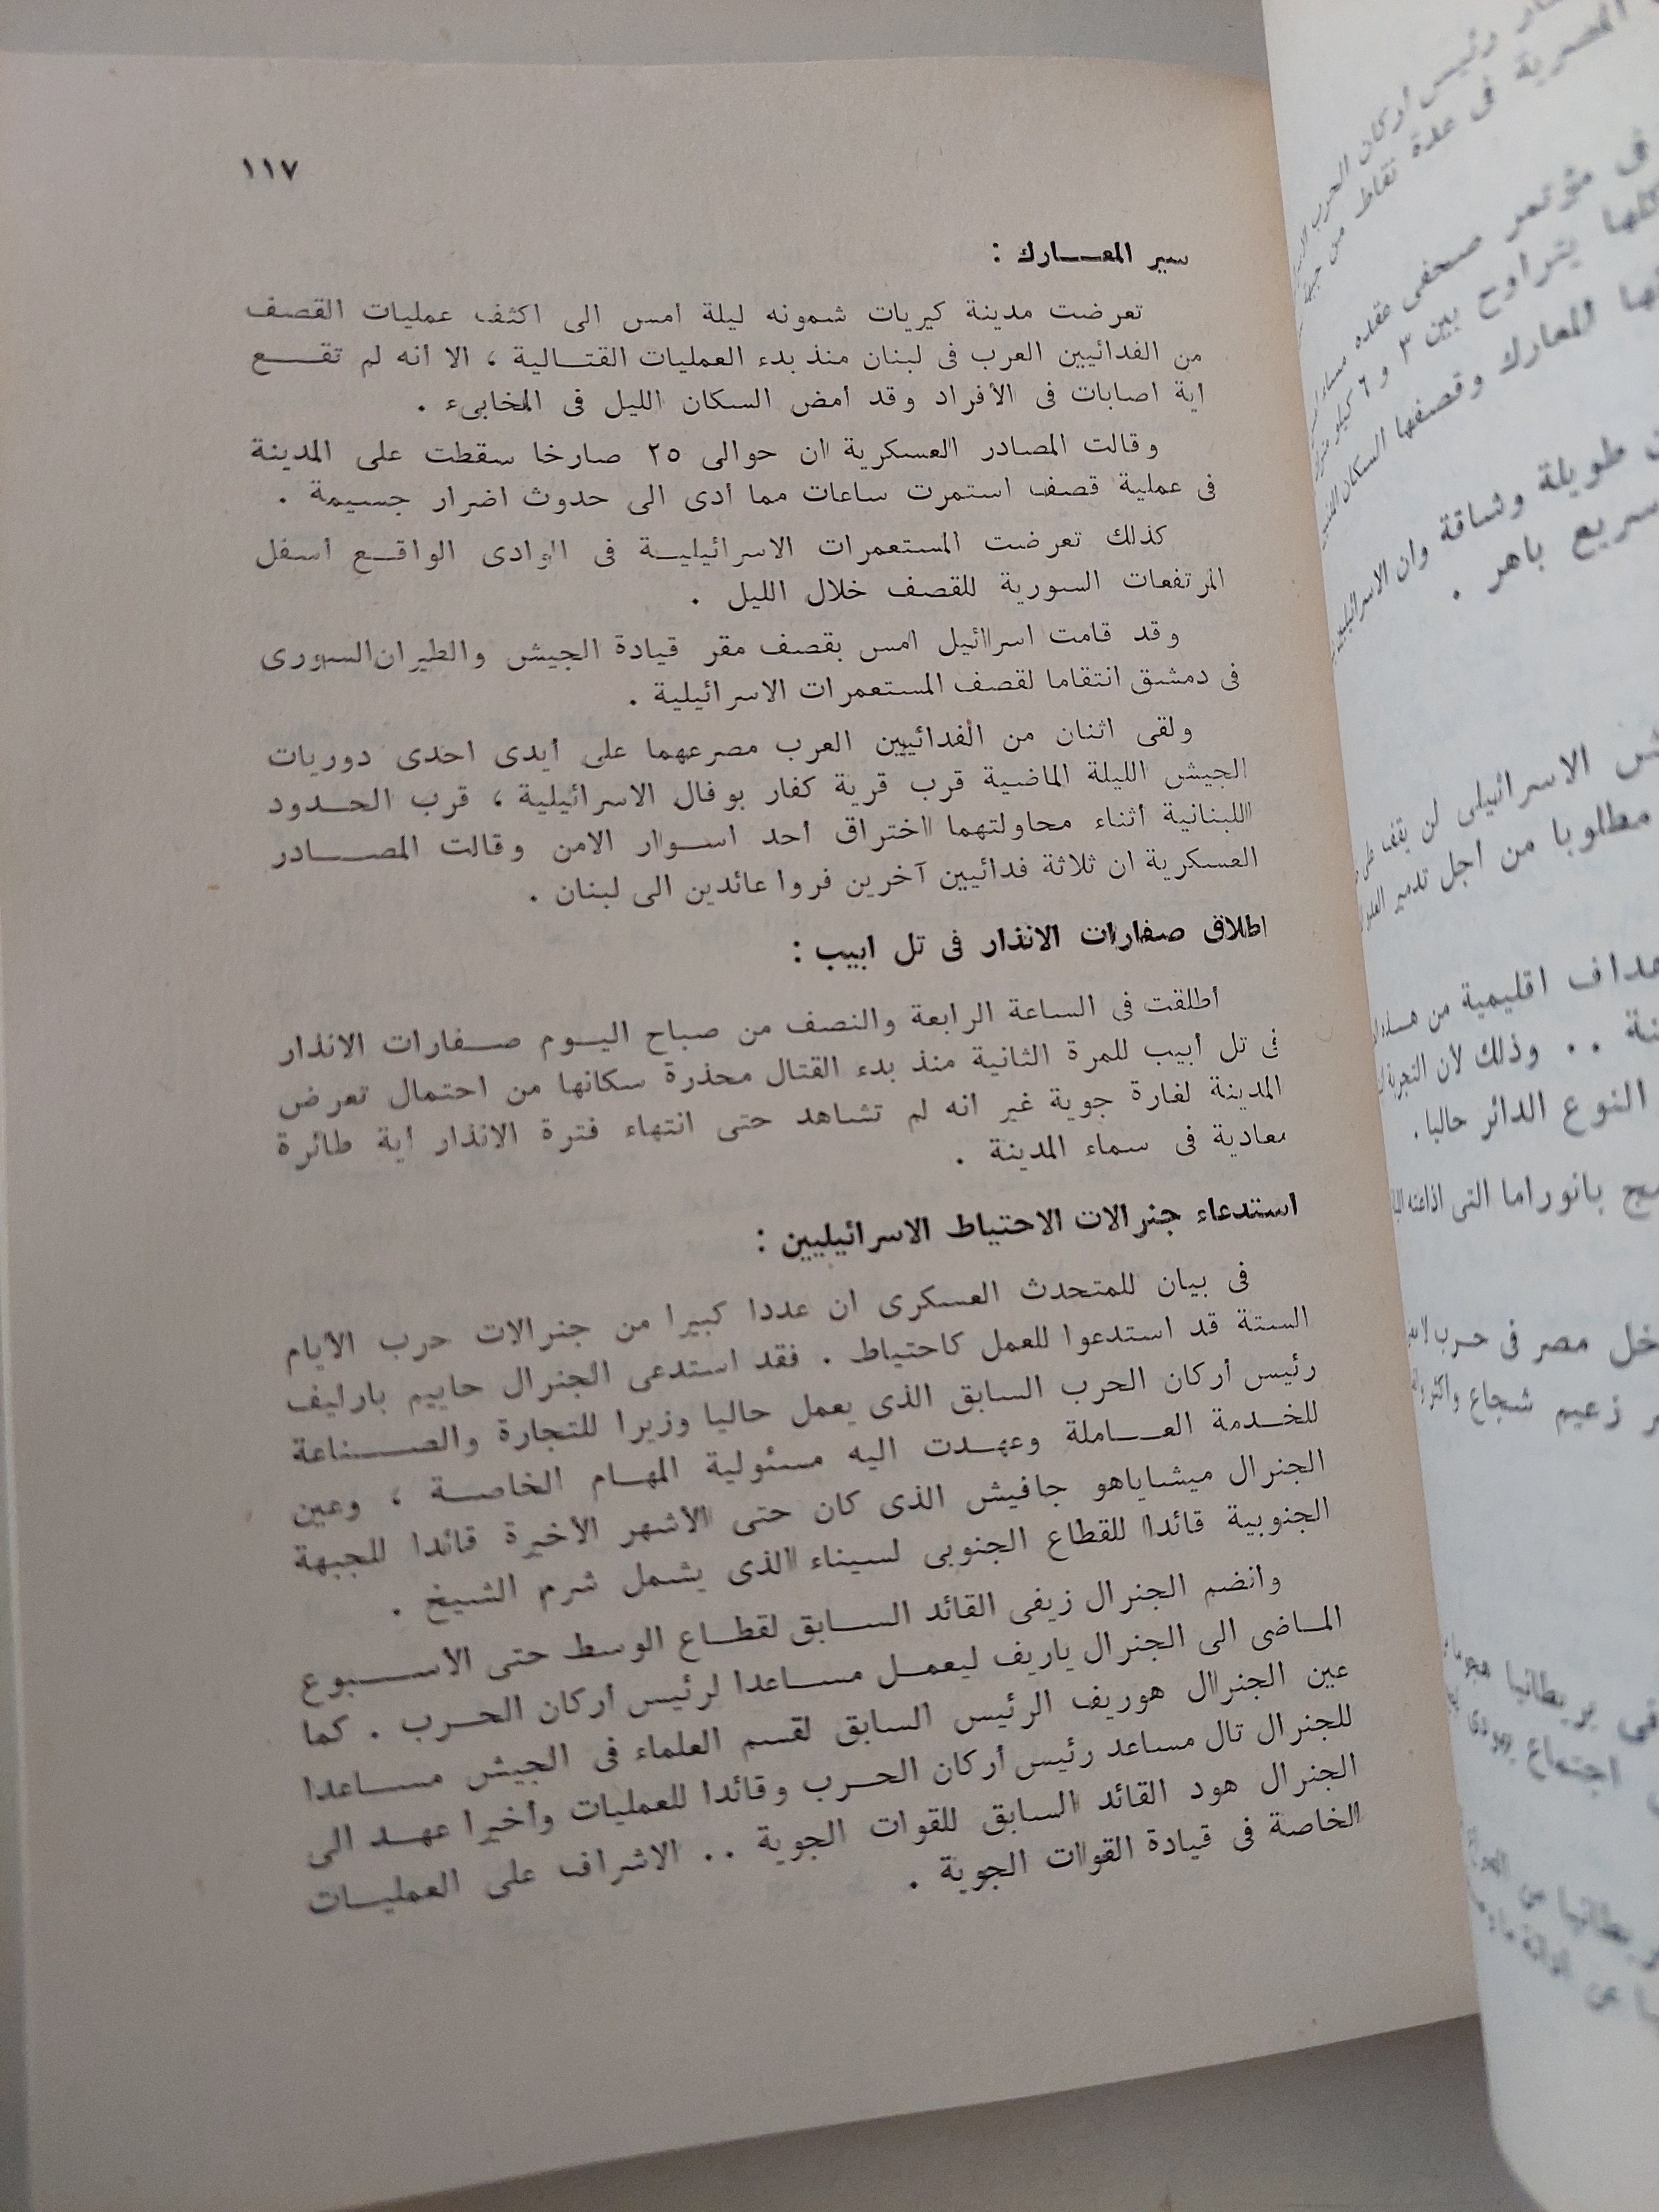 ١١٧
سير المعـــارك :
تعرضت مدينة كيريات شمونه ليلة امس الى اكثف عمليات القصف
من الفدائيين العرب فى لبنان منذ بدء العمليات القتـالية ، الا أنه لم تقـــع
أية اصابات فى الأفراد وقد أمض السكان الليل فى المخابىء .
وقالت المصادر العسكرية ان حوالى ٢٥ صارخا سقطت على المدينة
فى عملية قصف استمرت ساعات مما أدى الى حدوث اضرار جسيمة .
كذلك تعرضت المستعمرات الاسرائيليـــة فى الوادى الواقـــع أسفل
المرتفعات السورية للقصف خلال الليل .
وقد قامت اسرائيل امس بقصف مقر قيادة الجيش والطيران السورى
فى دمشق انتقاما لقصف المستعمرات الاسرائيلية .
ولقى اثنان من الفدائييين العرب مصرعهما على أيدى احدى دوريات
الجيش الليلة الماضية قرب قرية كفار بوفال الاسرائيلية ، قرب الحــدود
اللبنانية أثناء محاولتهما اختراق أحد اســوار الامن وقالت المصـــادر
العسكرية ان ثلاثة فدائيين آخرين فروا عائدين الى لبنان .
اطلاق صفارات الانذار فى تل ابيب :
أطلقت فى الساعة الرابعة والنصف من صباح اليــوم صــفارات الانذار
فى تل أبيب للمرة الثانية منذ بدء القتال محذرة سكانها من احتمال تعرض
المدينة لغارة جوية غير انه لم تشاهد حتى انتهاء فترة الانذار أية طائرة
معادية فى سماء المدينة .
استدعاء جنرالات الاحتياط الاسرائيليين :
فى بيان للمتحدث العسكرى ان عددا كبيرا من جنرالات حرب الأيام
الستة قد استدعوا للعمل كاحتياط . فقد استدعى الجنرال حاييم بارليف
رئيس أركان الحرب السابق الذى يعمل حاليا وزيرا للتجارة والصـــناعة
للخــدمة العـــاملة وعهــدت اليه مسئولية المهـام الخاصــة ، وعين
الجنرال ميشاياهو جافيش الذى كان حتى الأشهر الأخيرة قائدا للجبهة
الجنوبية قائدا للقطاع الجنوبى لسيناء الذى يشمل شرم الشيخ .
وانضم الجنرال زيفى القائد الســابق لقطــاع الوسط حتى الأســـبوع
المـاضى الى الجنرال ياريف ليعمــل مســاعدا لرئيس أركان الحــرب . كما
عين الجنرال هوريف الرئيس السابق لقسم العلماء فى الجيش مســـاعدا
للجنرال تال مساعد رئيس أركان الحــرب وقائدا للعمليات وأخيرا عهــد الى
الجنرال هود القائد السابق للقوات الجوية .. الاشراف على العمليــات
الخاصة فى قيادة القوات الجوية .
رئيس أركان الحرب
المصرية فى عدة نقاط من
فى مؤتمر صحفى عقده
يتراوح بين ٣ و ٦
المعارك وقصفها السكان
طويلة وشاقة وان
سريع باهر .
الاسرائيلى لن يقف
مطلوبا من أجل تدمير
اقليمية من
.. وذلك لأن
النوع الدائر حاليا .
بانوراما التى اذاعته
مصر فى حرب
زعيم شجاع
بريطانيا
اجتماع